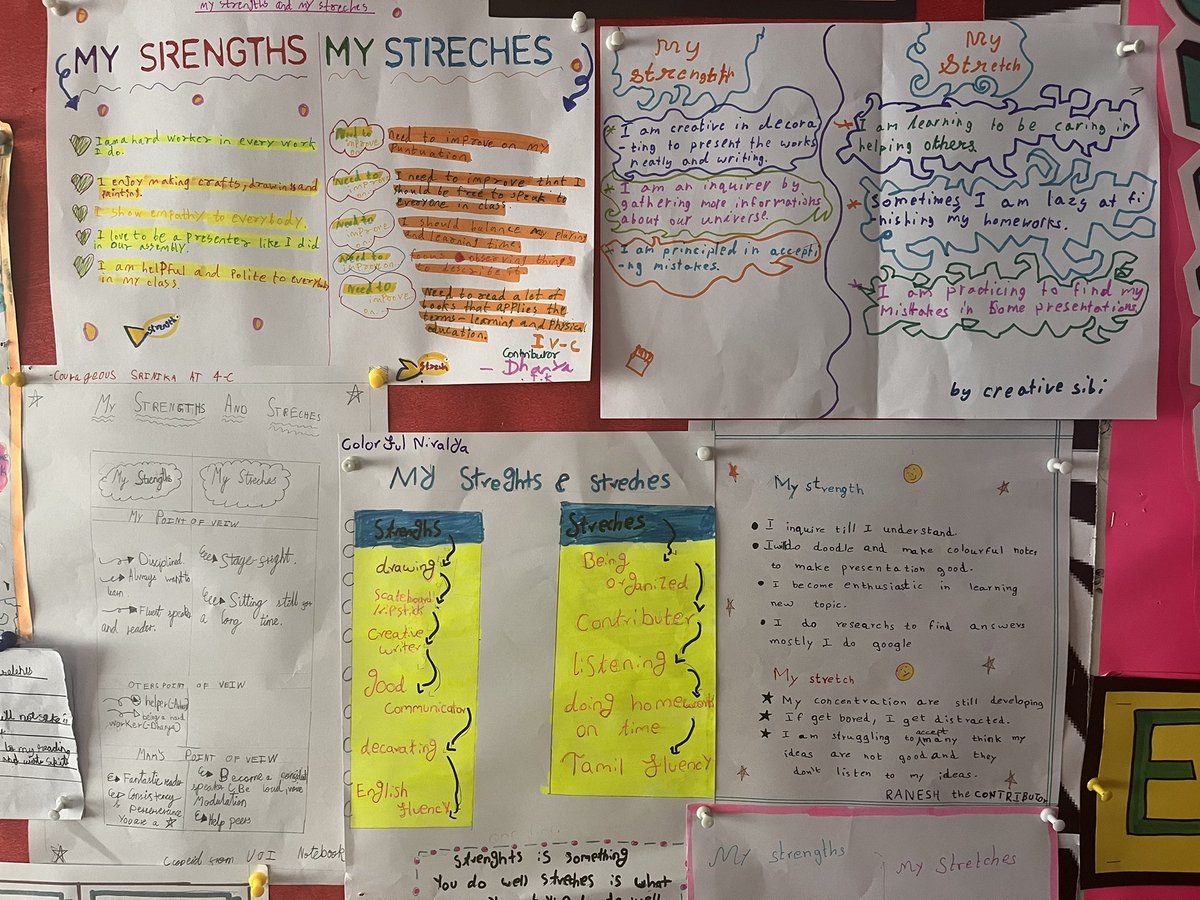 My strengths and my streches
MY SIRENGTHS
I am a hard worker in every work
I do.
I enjoy making crafts, drawings and
painting.
I show empathy to everybody.
I love to be a presenter like I did
in our assembly.
I am helpful and Polite to everybody
in my class.
Strength
MY STRECHES
Need to
improve
on
need to improve on my
Puntuation.
Need to
improve
I need to improve that I
should be free to speak to
everyone in class.
Need to
improve
I should balance my playing
end learning time.
Need to
improve on
focus observing things
describe it
Need to
improve
on
Need to read a lot of
books that applies the
terms-learning and Physical
education.
IV-C
Contributor
- Dhanya
Strech
My
strength
* I am creative in decora
-ting to present the works
neatly and writing.
* I am an inquirer by
gathering more informations
about our universe.
* I am principled in accepti
-ng mistakes.
My
Stretch
* I am learning to be caring in
helping others.
* Sometimes I am lazy at fi
-nishing my homeworks.
* I am practicing to find my
mistakes in some presentations.
by creative sibi
-Courageous SRINIKA AT 4-C
My STRENGTHS AND STRECHES
My Strengths
My Streches
My POINT OF VEIW
Disciplined.
Always want to
learn.
Fluent speaker
and reader.
Stage-fright.
Sitting still for
a long time.
OTERS POINT OF VEIW
helper
being a hard
worker (-Dhanya)
MAM'S POINT OF VEIW
Fantastic reader
Consistency
& Perseverance
You are a
Become a
speaker (Be loud, voice
Modulation
Help peers
Copeied from UOI Notebook
Colorful Niralya
My Streghts & streches
Strenghs
drawing
Scateboard/
ripstick
Creative
writer
good
Communicator
decarating
English
fluency
Streches
Being
organized
Contributer
listening
doing homework
on time
Tamil fluency
Strenghts is something
You do well streches is what
My strength
• I inquire till I understand.
• I will do doodle and make colourful notes
to make presentation good.
• I become enthusiastic in learning
new topic.
• I do researchs to find answers
mostly I do google
My stretch
★ My concentration are still developing
★ If get bored, I get distracted.
★ I am struggling to accept many think my
ideas are not good and they
don't listen to my ideas.
RANESH the CONTRIBUTOR
My strengths
My Stretches
to my reading
E